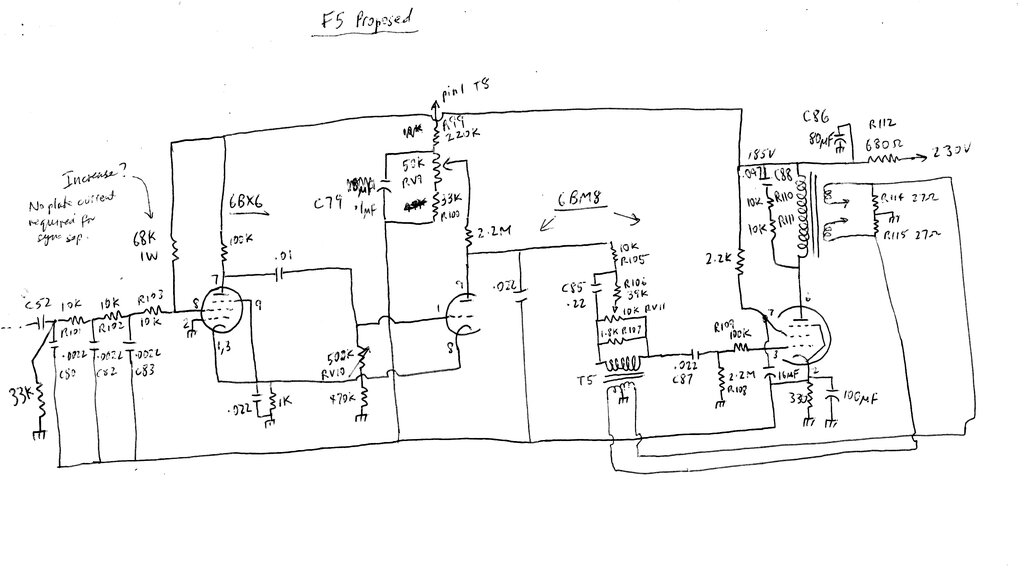 F5 Proposed
pin1 T5
R99
220K
C86
80µF
R112
680Ω
230V
185V
.047
C88
Increase?
No plate current
required for
sync sep.
6BX6
C79
.1µF
50K
RV9
33K
R100
6BM8
10K
R110
10K
R111
R114 27Ω
R115 27Ω
68K
1W
100K
2.2M
10K
R105
2.2K
.01
.022
C85
.22
R106
39K
10K RV11
1.8K R107
C52
10K
R101
10K
R102
R103
10K
7
8
9
2
1,3
9
1
8
6
7
3
2
R109
100K
.0022
C80
.0022
C82
.0022
C83
500K
RV10
T5
.022
C87
2.2M
R108
16µF
330
100µF
33K
.022
1K
470K